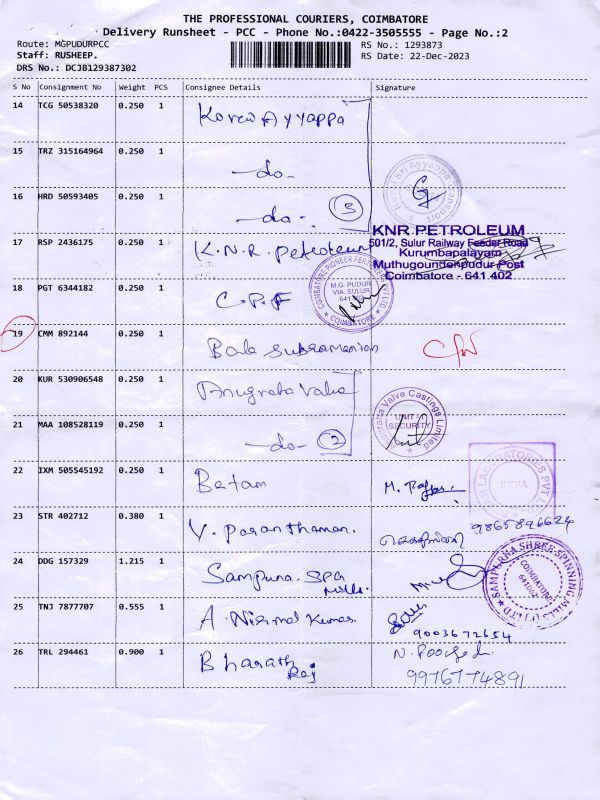 THE PROFESSIONAL COURIERS, COIMBATORE
Delivery Runsheet - PCC - Phone No.:0422-3505555 - Page No.:2
Route: MGPUDURPCC
RS No.: 1293873
Staff: RUSHEEP.
RS Date: 22-Dec-2023
DRS No.: DCJB129387302
S No Consignment No Weight PCS Consignee Details Signature
14 TCG 50538320 0.250 1 Kovew Ayyappa
15 TRZ 315164964 0.250 1 -do-
16 HRD 50593405 0.250 1 -do- 3
KNR PETROLEUM
501/2, Sulur Railway Feeder Road
Kurumbapalayam
Muthugoundenpudur Post
Coimbatore - 641 402
17 RSP 2436175 0.250 1 K.N.R. Petroleum
18 PGT 6344182 0.250 1 C.P.F
COIMBATORE PIONEER FERT
M.G. PUDUR
VIA. SULUR
COIMBATORE
19 CMM 892144 0.250 1 Bala Subramanian
20 KUR 530906548 0.250 1 Anugraha Valve
21 MAA 108528119 0.250 1 -do- 2
Valve Castings Limited
UNIT
SECURITY
22 IXM 505545192 0.250 1 Betam M.
LABORATORIES PVT
INDIA
23 STR 402712 0.380 1 V. Paranthaman.
9865896624
24 DDG 157329 1.215 1 Sampurna. Spg Mills.
SAMPURNA SHREE SPINNING MILLS (P) LTD
COIMBATORE
25 TNJ 7877707 0.555 1 A. Nirmal Kumar
9003672654
26 TRL 294461 0.900 1 Bharath Raj N.
9976774891